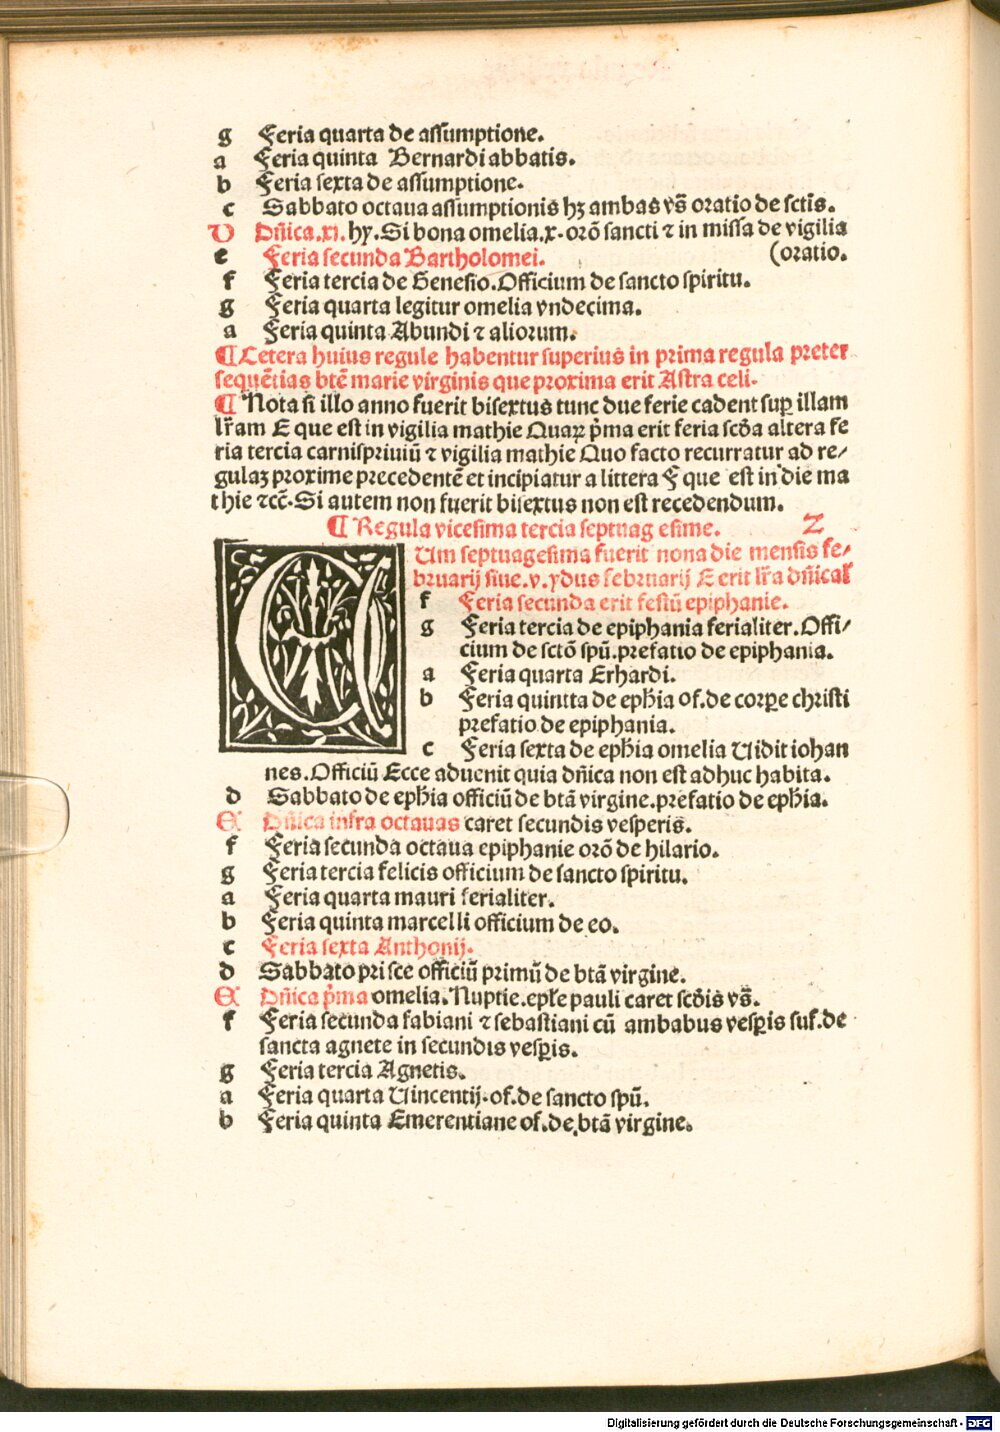 g Feria quarta de assumptione.
a Feria quinta Bernardi abbatis.
b Feria sexta de assumptione.
c Sabbato octaua assumptionis hꝫ ambas vs̄ oratio de sctīs.
D Dn̄ica.xi. hy. Si bona omelia.x. orō sancti ⁊ in missa de vigilia
e Feria secunda Bartholomei. (oratio.
f Feria tercia de Genesio. Officium de sancto spiritu.
g Feria quarta legitur omelia vndecima.
a Feria quinta Abundi ⁊ aliorum.
¶ Cetera huius regule habentur superius in prima regula preter
sequētias btē marie virginis que proxima erit Astra celi.
¶ Nota si illo anno fuerit bisextus tunc due ferie cadent suꝑ illam
lr̄am E que est in vigilia mathie Quaꝝ pͥma erit feria scd̄a altera fe
ria tercia carnispriuiū ⁊ vigilia mathie Quo facto recurratur ad re⸗
gulaꝫ proxime precedentē et incipiatur a littera F que est in die ma
thie ⁊cc̄. Si autem non fuerit bisextus non est recedendum.
¶ Regula vicesima tercia septuag esime. Z
CUm septuagesima fuerit nona die mensis fe⸗
bruarij siue.v.ydus februarij E erit lr̄a dn̄ical̓
f Feria secunda erit festū epiphanie.
g Feria tercia de epiphania ferialiter. Offi⸗
cium de sctō spū. prefatio de epiphania.
a Feria quarta Erhardi.
b Feria quintta de eph̄ia of. de corꝑe christi
prefatio de epiphania.
c Feria sexta de eph̄ia omelia Uidit iohan
nes. Officiū Ecce aduenit quia dn̄ica non est adhuc habita.
d Sabbato de eph̄ia officiū de btā virgine. prefatio de eph̄ia.
E Dn̄ica infra octauas caret secundis vesperis.
f Feria secunda octaua epiphanie orō de hilario.
g Feria tercia felicis officium de sancto spiritu.
a Feria quarta mauri ferialiter.
b Feria quinta marcelli officium de eo.
c Feria sexta Anthonij.
d Sabbato prisce officiū primū de btā virgine.
E Dn̄ica pͥma omelia. Nuptie. epl̄e pauli caret scd̄is vs̄.
f Feria secunda fabiani ⁊ sebastiani cū ambabus vesꝑis suf. de
sancta agnete in secundis vesꝑis.
g Feria tercia Agnetis.
a Feria quarta Uincentij. of. de sancto spū.
b Feria quinta Emerentiane of. de btā virgine.
Digitalisierung gefördert durch die Deutsche Forschungsgemeinschaft - DFG